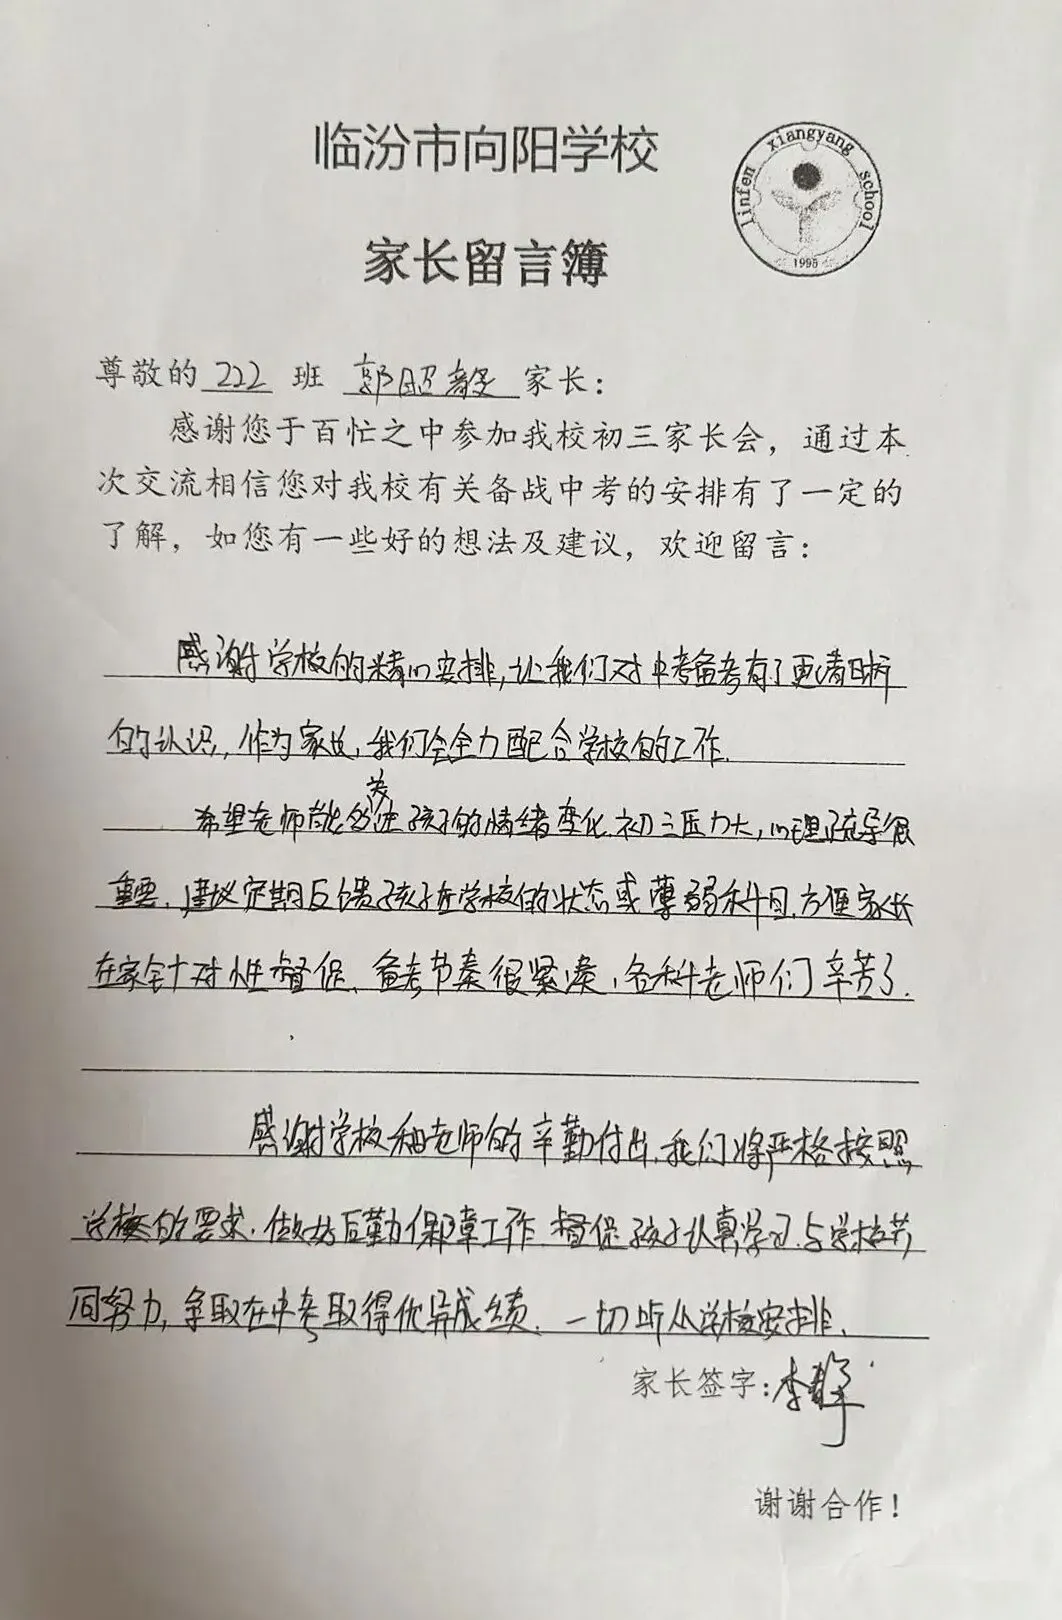 临汾市向阳学校
linfen xiangyang school
1995
家长留言簿
尊敬的 222 班 郭昭毅 家长：
感谢您于百忙之中参加我校初三家长会，通过本
次交流相信您对我校有关备战中考的安排有了一定的
了解，如您有一些好的想法及建议，欢迎留言：
感谢学校的精心安排，让我们对中考备考有了更清晰
的认识，作为家长，我们会全力配合学校的工作.
关
希望老师能多注孩子的情绪变化.初三压力大，心理疏导很
重要，建议定期反馈孩子在学校的状态或薄弱科目.方便家长
在家针对性督促、备考节奏很紧凑，各科老师们辛苦了.
感谢学校和老师的辛勤付出.我们将严格按照
学校的要求.做好后勤保障工作.督促孩子认真学习.与学校共
同努力，争取在中考取得优异成绩.一切听从学校安排.
家长签字：李
谢谢合作！